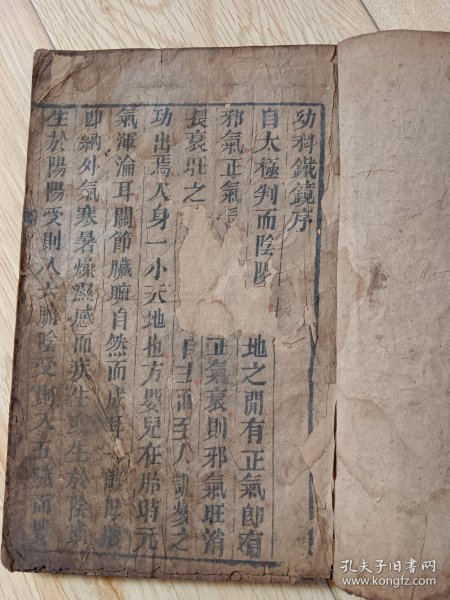 幼科鐵鏡序
自太極判而陰陽 地之間有正氣即有
邪氣正氣 正氣衰則邪氣旺消
長衰旺之 而至人調燮之
功出焉人身一小天地也方嬰兒在胎時元
氣渾淪耳關節臟腑自然而成耳一離母
即納外氣寒暑燥濕感而疾生或生於陰或
生於陽陽受則入六腑陰受則入五臟而嬰
孔夫子旧书网
www.kongfz.com